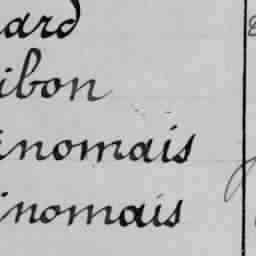 ard
ibon
inomais
inomais